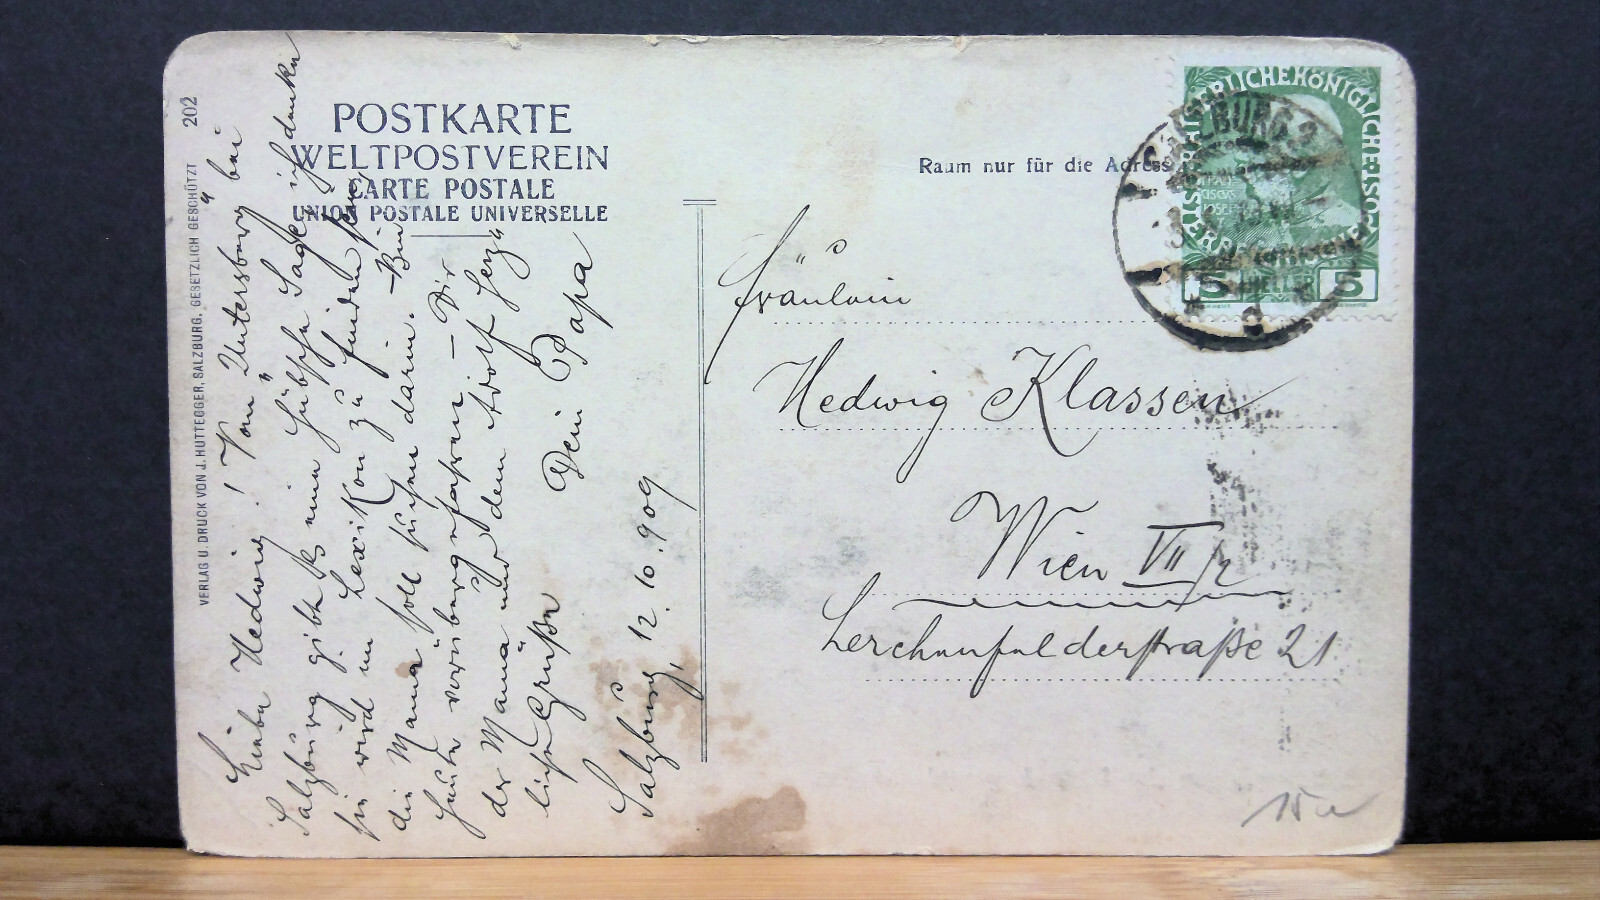 202
VERLAG U. DRUCK VON J. HUTTEGGER, SALZBURG. GESETZLICH GESCHÜTZT
POSTKARTE
WELTPOSTVEREIN
CARTE POSTALE
UNION POSTALE UNIVERSELLE
Liebe Hedwig! Vom „Untersberg“ bei
Salzburg gibt es eine hübsche Sage, ich denke
sie wird im Lexikon zu finden sein,
die Mama soll suchen darin. – Bin
heute vorübergefahren – Dir
der Mama und dem Adolf herz
liche Grüße
Dein Papa
Salzburg, 12.10.909
Raum nur für die Adresse
Fräulein
Hedwig Klassen
Wien VII/2
Lerchenfelderstraße 21
KAISERLICHE KÖNIGLICHE ÖSTERREICHISCHE
SALZBURG 2
5 HELLER 5
15